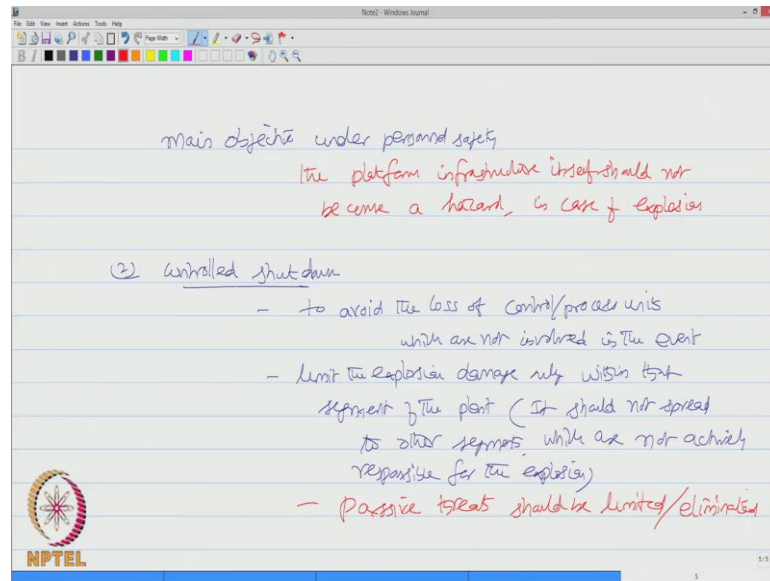 Note2 - Windows Journal
File Edit View Insert Actions Tools Help
Page Width
B I
main objective under personnel safety
the platform infrastructure itself should not
become a hazard, in case of explosion
(2) controlled shutdown
- to avoid the loss of control/process units
which are not involved in the event
- limit the explosion damage only within that
segment of the plant (It should not spread
to other segments, which are not actively
responsible for the explosion)
- Passive threats should be limited/eliminated
NPTEL
5/5
5